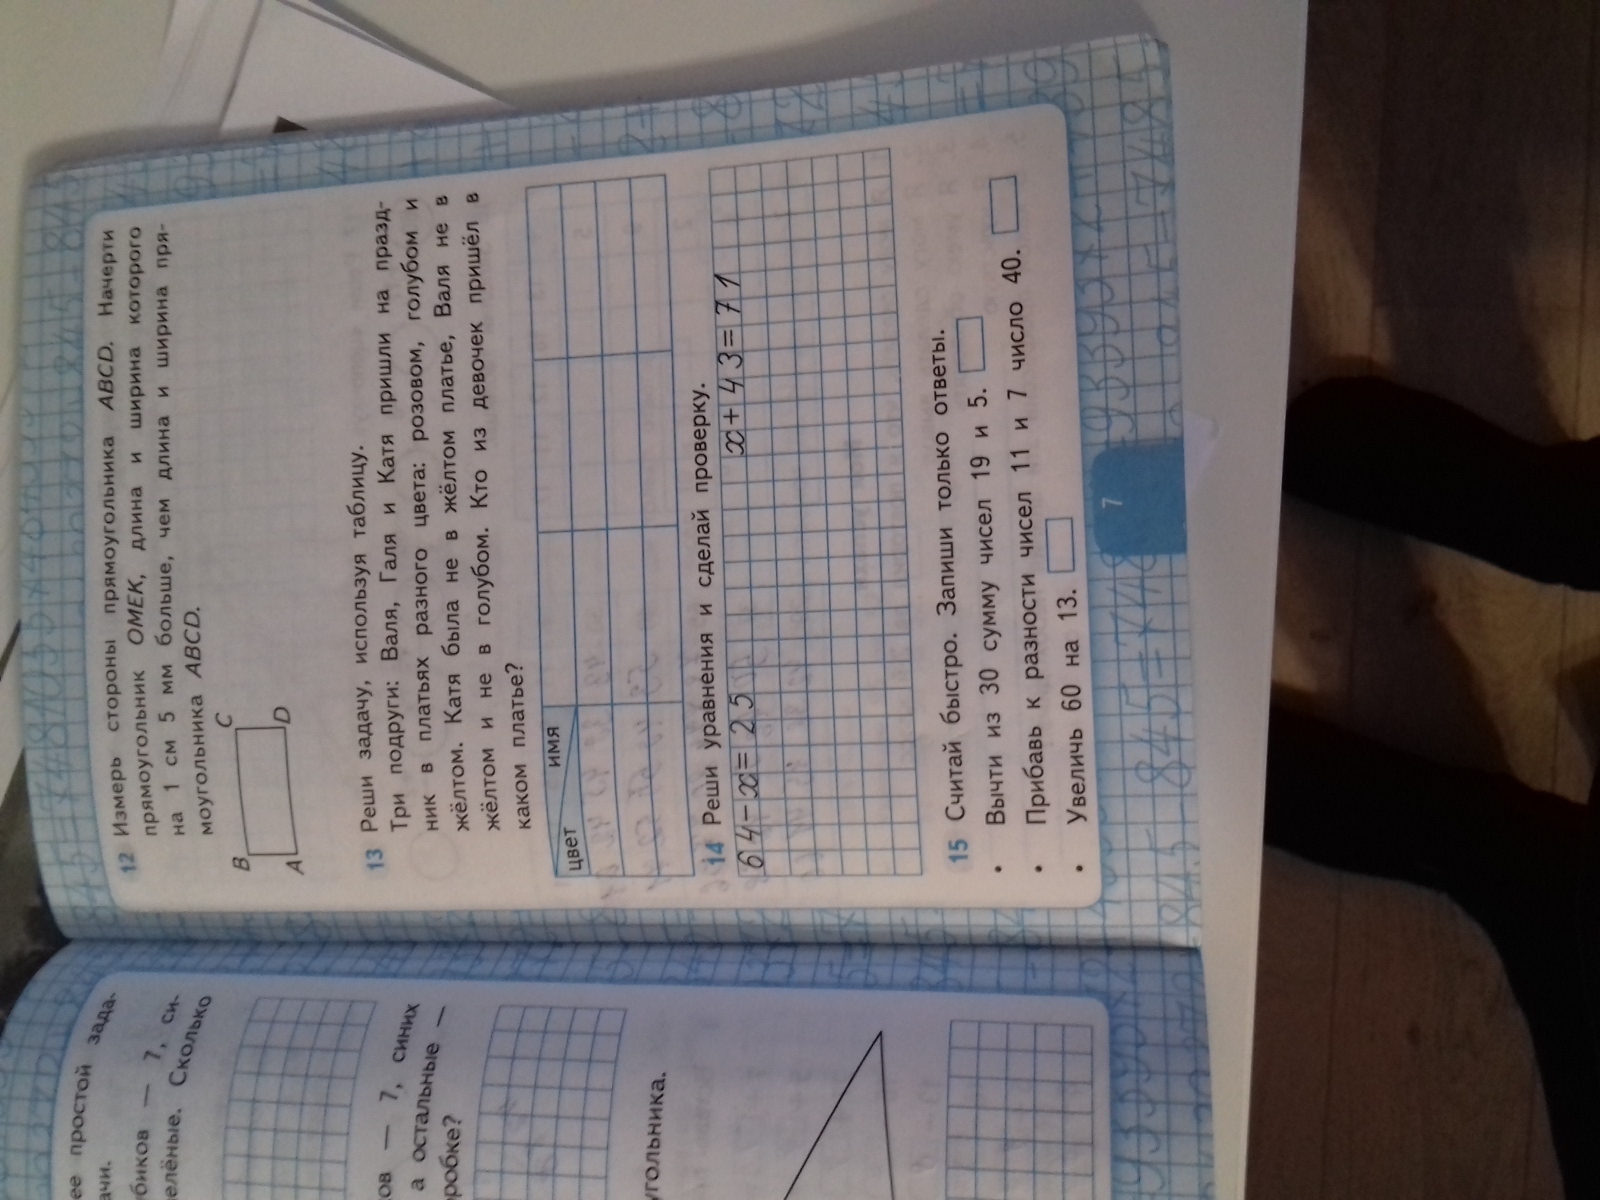 12 Измерь стороны прямоугольника ABCD. Начерти
прямоугольник ОМЕК, длина и ширина которого
на 1 см 5 мм больше, чем длина и ширина пря-
моугольника ABCD.
B C
A D
13 Реши задачу, используя таблицу.
Три подруги: Валя, Галя и Катя пришли на празд-
ник в платьях разного цвета: розовом, голубом и
жёлтом. Катя была не в жёлтом платье, Валя не в
жёлтом и не в голубом. Кто из девочек пришёл в
каком платье?
имя
цвет
14 Реши уравнения и сделай проверку.
64-x=25 x+43=71
15 Считай быстро. Запиши только ответы.
• Вычти из 30 сумму чисел 19 и 5.
• Прибавь к разности чисел 11 и 7 число 40.
• Увеличь 60 на 13.
7
ее простой зада-
ачи.
убиков — 7, си-
елёные. Сколько
ов — 7, синих
а остальные —
робке?
угольника.